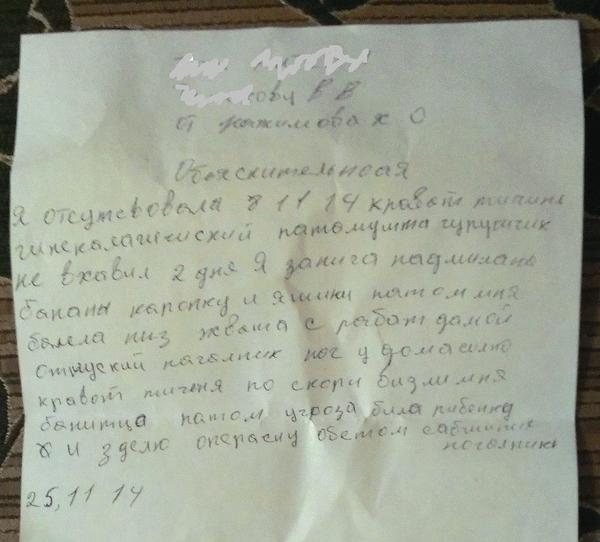 В В
от Рахимова х О
Обяснительноая
Я отсутсвовала 8 11 14 кравот тичина
гинекалагичиский патамушта грущик
не вхавил 2 дня Я занига падмилане
бананы каропку и яшики патом мня
балела низ жвата с работ дамой
отпуский начални пог у дома силно
кравот тичения по скори визли мня
банитца патом угроза била рибенку
и зделю операсиу обетом сабшите
началники
25,11 14